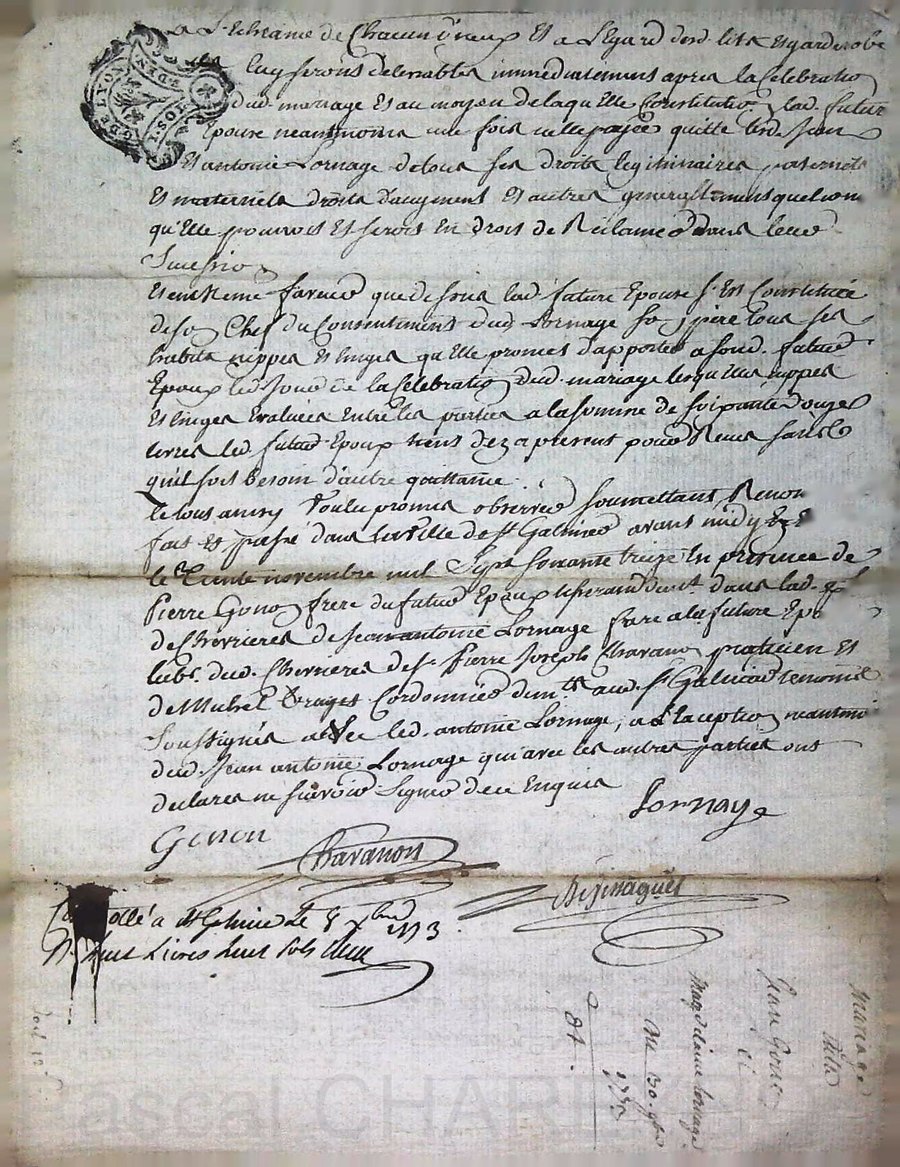 a L'echeance de Chacun d'eux Et a L'Egard desd. lits Et garderobe
luy seront delivrables immediatement apres la Celebratio
dud. mariage Et au moyen de laquelle Constitutio lad. future
Epouse neantmoins une fois icelle payée quitte lesd. Jean
Et antoine Lornage de tous ses droits legitimaires paternels
Et maternels droits d'augment Et autres generallement quelconq
qu'Elle pouvoit Et seroit En droit de Reclamer dans leur
Succession
Et en Meme faveur que dessus lad. future Epouse s'Est Constituée
de so Chef du Consentement dud. Lornage so père tous ses
habits nippes Et linges qu'Elle promet d'apporter a sond. futur
Epoux le Jour de la Celebratio dud. mariage lesquelles nippes
Et linges Evaluées Entre les parties a la somme de soixante douze
livres led. futur Epoux tient dez a present pour Reçus sans
qu'il soit Besoin d'autre quittance
le tout ainsy Voulu promis observer soumettant Renon
fait Et passé dans la ville de St Galmier avant midy
le trente novembre mil Sept soixante treize En presence de
Pierre Gono frere du futur Epoux dans lad.
de Chevrieres de Jean antoine Lornage frere a la future Epo
dud. Chevrieres de Sr Pierre Joseph Chavano praticien Et
de Michel Cordonnier aud. St Galmier temoins
soussignés avec led. antoine Lornage, a L'Exception neantmoi
dud. Jean antoine Lornage qui avec les autres parties ont
declarés ne sçavoir signer de ce Enquis
Lornage
Gonon
Chavanon
Controllé a St Galmier Le 8 xbre 1773
R. huit Livres huit sols
mariage
de
Jean Gono
Et
magdelaine Lornage
du 30. 9bre
1773
84.
Pascal CHAR
DE LYON